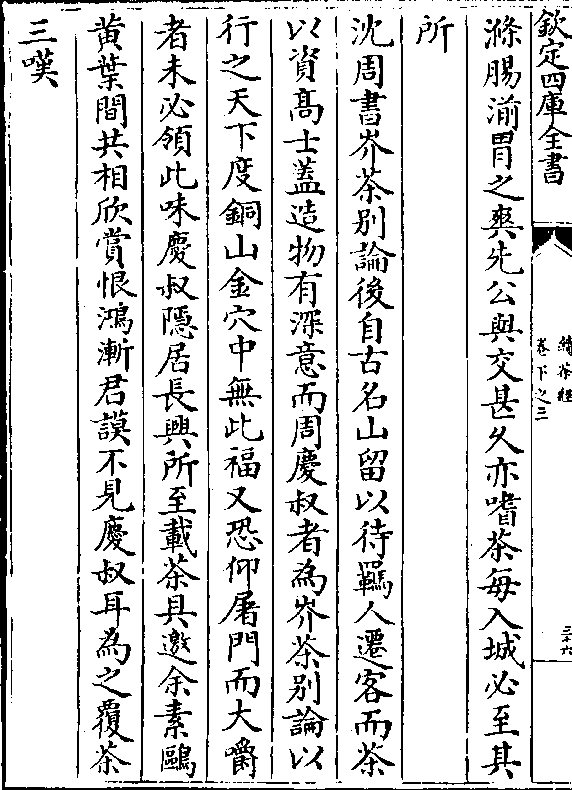 欽定四庫全書
續茶經
卷下之三
三十六
滌腸湔胃之爽先公與交甚久亦嗜茶每入城必至其
所
沈周書岕茶别論後自古名山留以待羈人遷客而茶
以資髙士蓋造物有深意而周慶叔者為岕茶别論以
行之天下度銅山金穴中無此福又恐仰屠門而大嚼
者未必領此味慶叔隱居長興所至載茶具邀余素鷗
黄葉間共相欣賞恨鴻漸君謨不見慶叔耳為之覆茶
三嘆